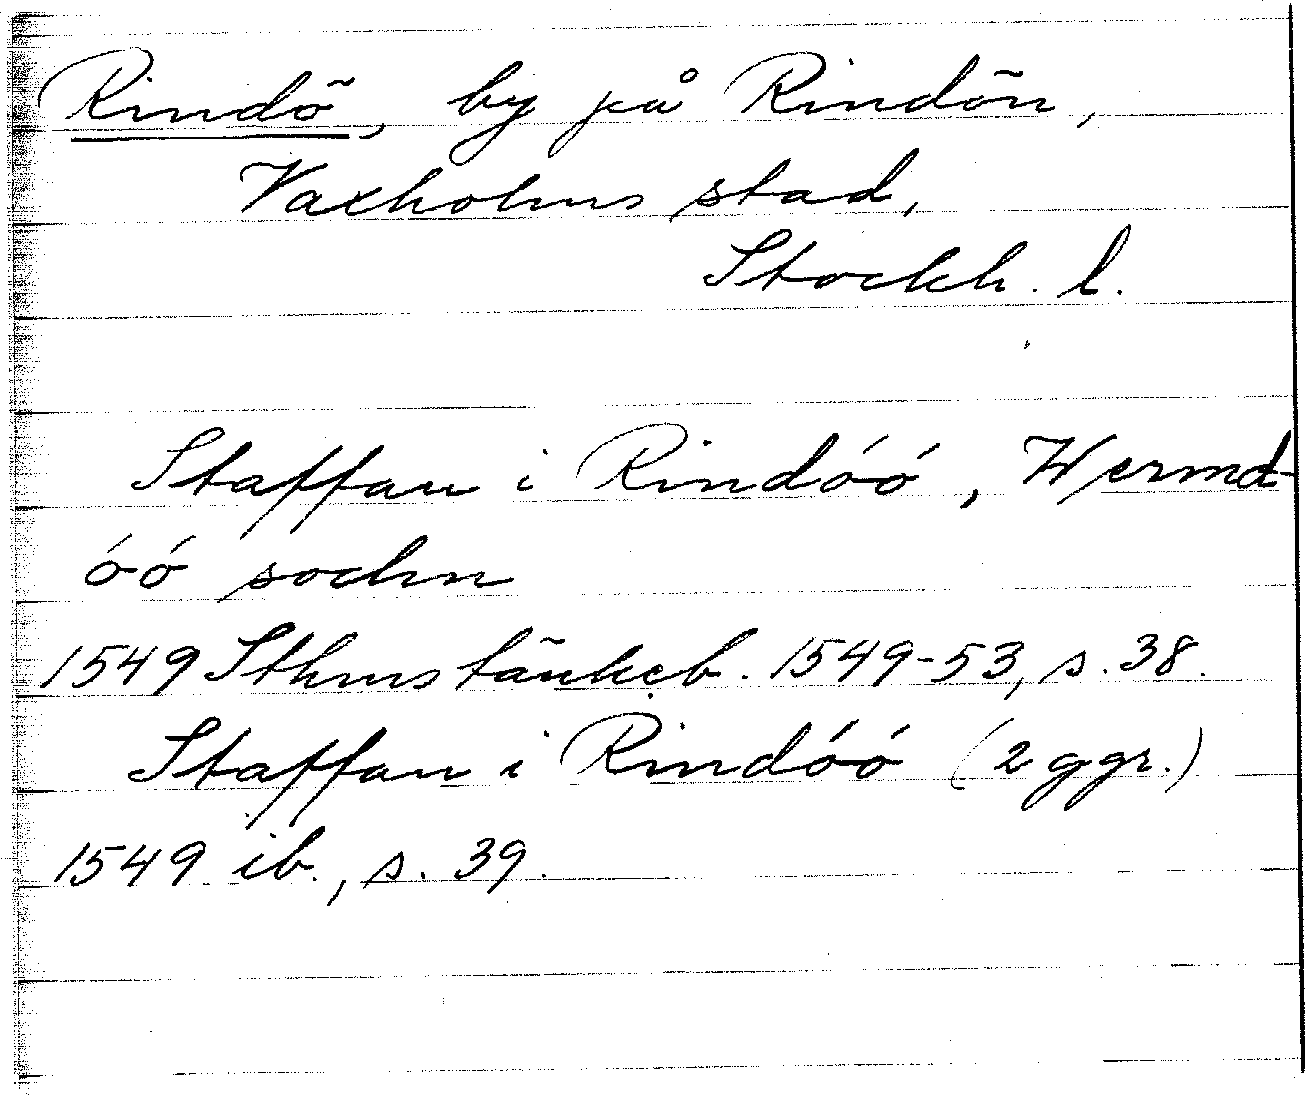 Rindö, by på Rindön,
Vaxholms stad,
Stockh. l.
Staffan i Rindóó, Wermd-
óó sochn
1549 Sthms tänkeb. 1549-53, s. 38.
Staffan i Rindóó (2 ggr.)
1549 ib., s. 39.